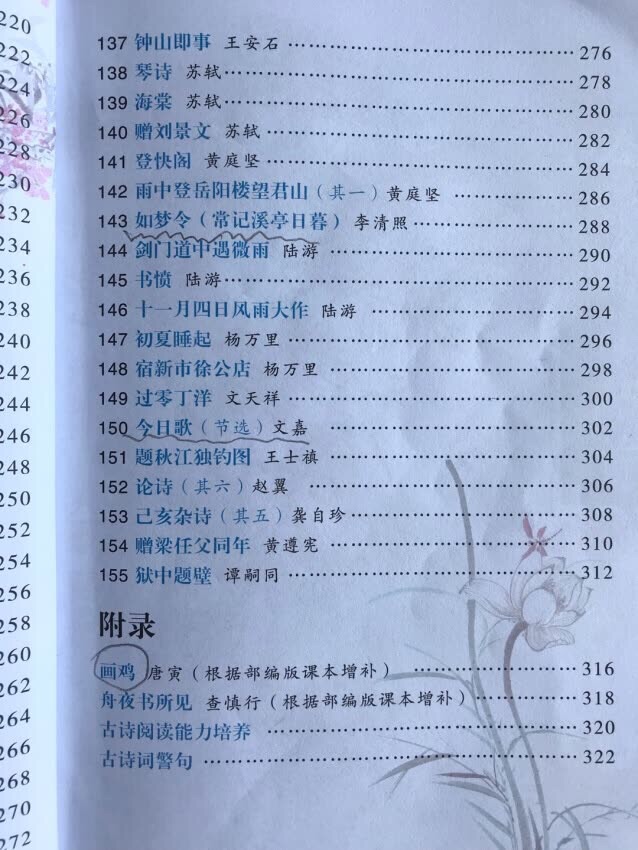 220
222
224
226
228
230
232
234
236
238
240
242
244
246
248
250
252
254
256
258
260
262
264
266
268
270
272
137 钟山即事 王安石 ……………………………… 276
138 琴诗 苏轼 ……………………………… 278
139 海棠 苏轼 ……………………………… 280
140 赠刘景文 苏轼 ……………………………… 282
141 登快阁 黄庭坚 ……………………………… 284
142 雨中登岳阳楼望君山（其一）黄庭坚 ……………… 286
143 如梦令（常记溪亭日暮） 李清照 ……………… 288
144 剑门道中遇微雨 陆游 ……………………… 290
145 书愤 陆游 ……………………………… 292
146 十一月四日风雨大作 陆游 ……………………… 294
147 初夏睡起 杨万里 ……………………………… 296
148 宿新市徐公店 杨万里 ……………………… 298
149 过零丁洋 文天祥 ……………………………… 300
150 今日歌（节选）文嘉 ……………………… 302
151 题秋江独钓图 王士禛 ……………………… 304
152 论诗（其六）赵翼 ……………………… 306
153 己亥杂诗（其五）龚自珍 ……………………… 308
154 赠梁任父同年 黄遵宪 ……………………… 310
155 狱中题壁 谭嗣同 ……………………………… 312
附录
画鸡 唐寅（根据部编版课本增补） ……………… 316
舟夜书所见 查慎行（根据部编版课本增补） ………… 318
古诗阅读能力培养 ……………………………… 320
古诗词警句 ……………………………… 322